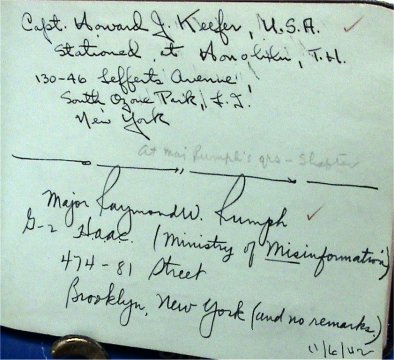 Capt. Howard J. Keefer, U.S.A.
Stationed at Honolulu, T.H.
130-46 Lefferts Avenue,
South Ozone Park, L.I.
New York
At Maj Rumph's qrs - Shafter
Major Raymond W. Rumph
G-2 Haac. (Ministry of Misinformation)
474-81 Street
Brooklyn, New York (and no remarks.)
11/6/42